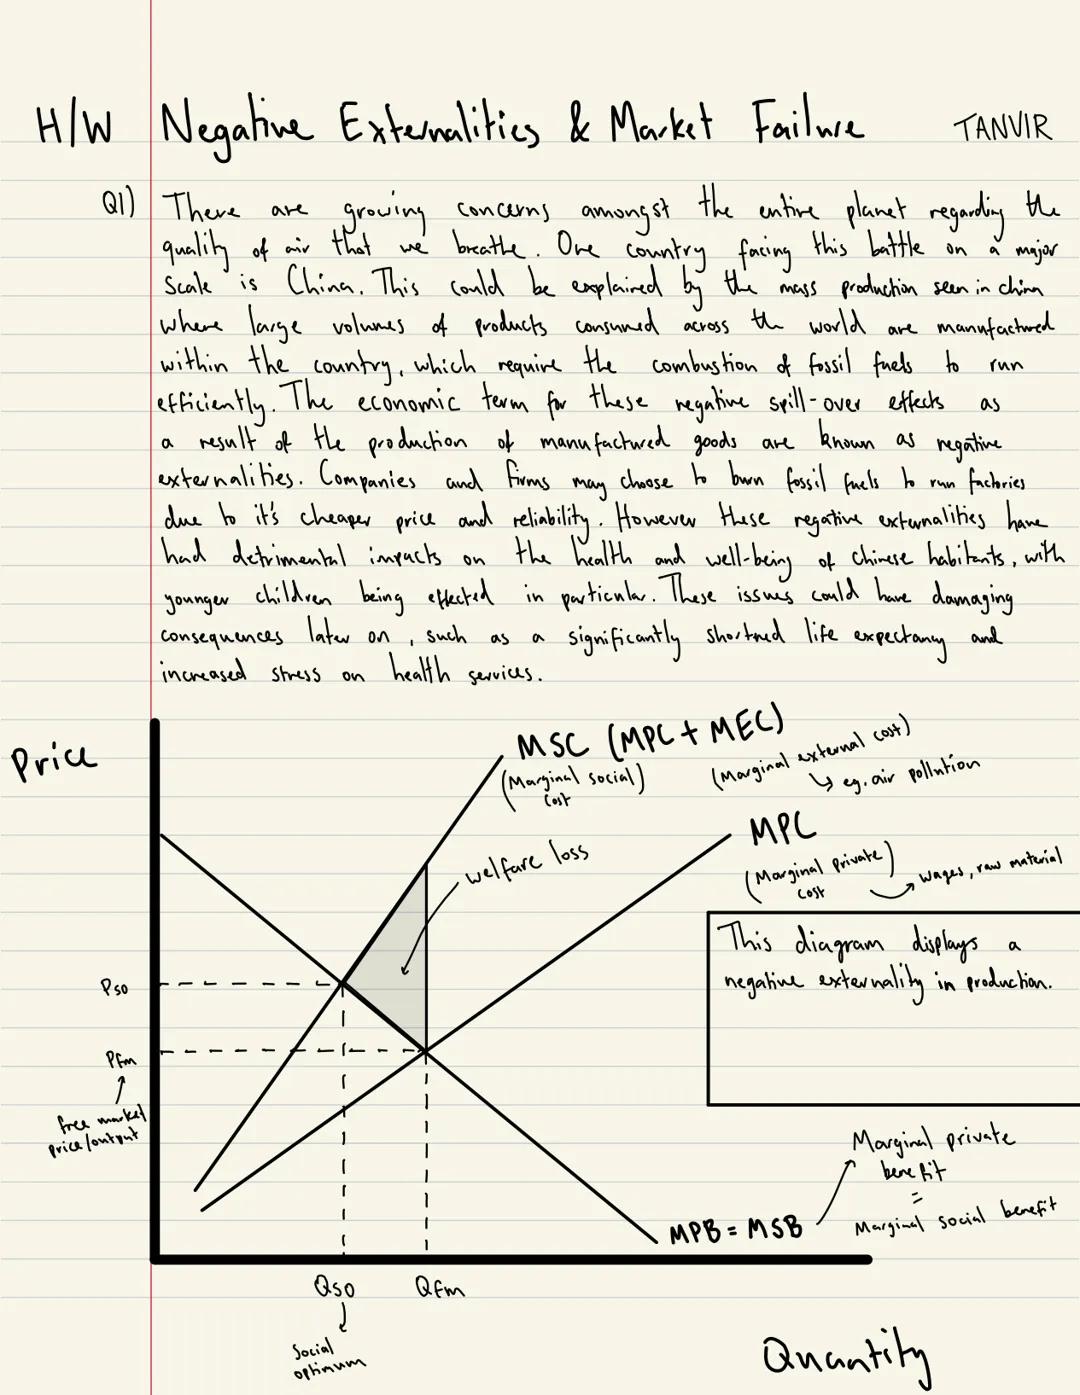 H/W Negative Externalities & Market Failure TANVIR
Q1) There are growing concerns amongst the entire planet regarding the
quality of air that we breathe. One country facing this battle on a major
scale is China. This could be explained by the mass production seen in china
where large volumes of products consumed across the world are manufactured
within the country, which require the combustion of fossil fuels to run
efficiently. The economic term for these negative spill-over effects as
a result of the production of manufactured goods are known as negative
externalities. Companies and firms may choose to burn fossil fuels to run factories
due to it's cheaper price and reliability. However these negative externalities have
had detrimental impacts on the health and well-being of Chinese habitants, with
younger children being effected in particular. These issues could have damaging
consequences later on, such as a significantly shortned life expectancy and
increased stress on health services.
Price
MSC (MPC + MEC)
(Marginal social)
cost
(Marginal external cost)
↳ eg. air pollution
welfare loss
MPC
(Marginal private)
cost
wages, raw material
This diagram displays a
negative externality in production.
Pso
Pfm
free market
price/output
MPB = MSB
Marginal private
benefit
=
Marginal social benefit
Qso Qfm
Social
optimum
Quantity